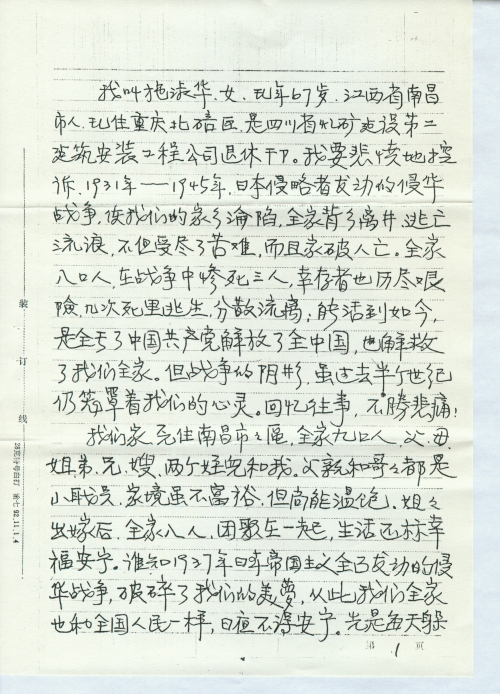 我叫施淑华，女，现年67岁，江西省南昌
市人，现住重庆北碚区，是四川省煤矿建设第二
建筑安装工程公司退休干部。我要悲愤地控
诉，1931年——1945年，日本侵略者发动的侵华
战争，使我们的家乡沦陷，全家背乡离井，逃亡
流浪，不但受尽了苦难，而且家破人亡。全家
八口人，在战争中惨死三人，幸存者也历尽艰
險，几次死里逃生，分散流离，能活到如今，
是全亏了中国共产党解放了全中国，也解救
了我们全家。但战争的阴影，虽过去半个世纪
仍笼罩着我们的心灵。回忆往事，不勝悲痛！
我们家住南昌市区，全家九口人，父、母
姐弟、兄、嫂，两个侄儿和我。父親和哥々都是
小职员，家境虽不富裕，但尚能温饱。姐々
出嫁后，全家八人，团聚在一起，生活还标幸
福安宁。谁知1937年日本帝国主义全面发动的侵
华战争，破碎了我们的美夢，从此，我们全家
也和全国人民一样，日夜不得安宁。先是每天躲
第 1 页
装
订
线